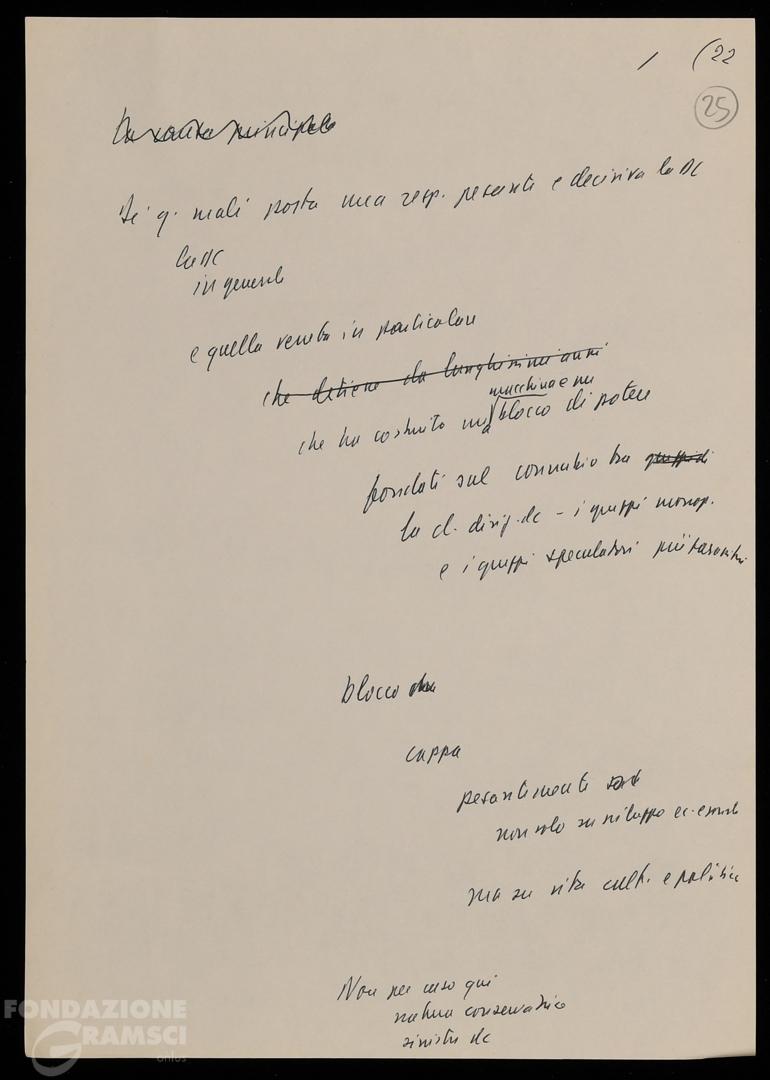 / (22
25
La causa principale
Di q. mali porta una resp. pesante e decisiva la DC
la DC
in generale
e quella veneta in particolare
che detiene da lunghissimi anni
macchina e un
che ha costruito una blocco di potere
fondati sul connubio tra gruppi di
la cl. dirig. dc - i gruppi monop.
e i gruppi speculatori più
blocco che
cappa
pesantemente
non solo su sviluppo ec. e sociale
ma su vita cult. e politica
Non per caso qui
natura conservatrice
sinistra dc
FONDAZIONE
GRAMSCI
onlus